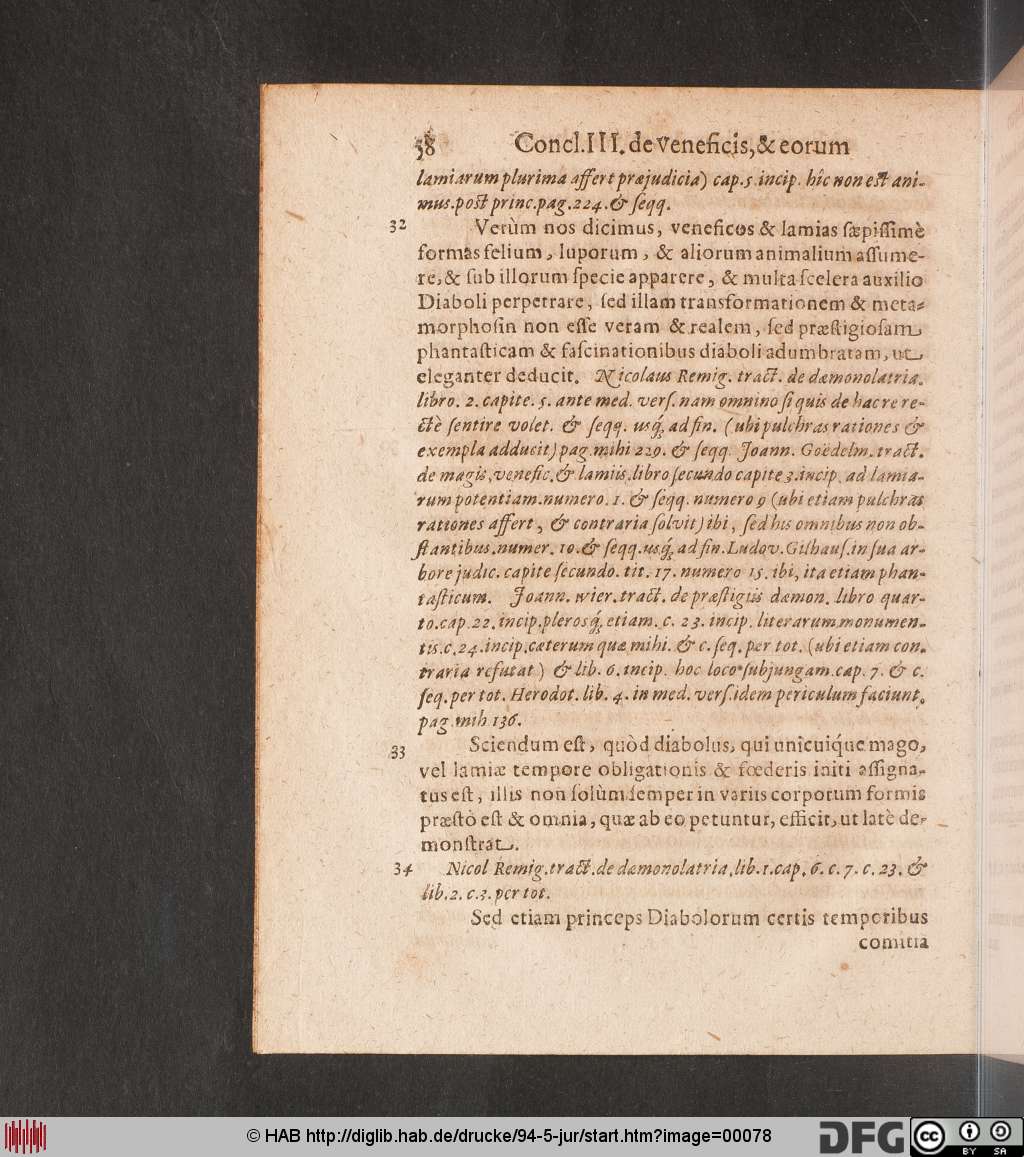 58 Concl. III. de veneficis, & eorum
lamiarum plurima affert præjudicia) cap. 5. incip. hîc non est ani-
mus. post princ. pag. 224. & ſeqq.
32 Verùm nos dicimus, veneficos & lamias ſæpiſſimè
formas felium, luporum, & aliorum animalium aſſume-
re, & ſub illorum ſpecie apparere, & multa ſcelera auxilio
Diaboli perpetrare, ſed illam transformationem & meta-
morphoſin non eſſe veram & realem, ſed præſtigioſam
phantaſticam & faſcinationibus diaboli adumbratam, ut
eleganter deducit. Nicolaus Remig. tract. de dæmonolatria.
libro. 2. capite. 5. ante med. verſ. nam omnino ſi quis de hac re re-
ctè ſentire volet. & ſeqq. usq́; ad fin. (ubi pulchras rationes &
exempla adducit) pag. mihi 229. & ſeqq. Joann. Goëdelm. tract.
de magis, venefic. & lamiis, libro ſecundo capite 3. incip. ad lamia-
rum potentiam. numero. 1. & ſeqq. numero 9 (ubi etiam pulchras
rationes affert, & contraria ſolvit) ibi, ſed his omnibus non ob-
ſtantibus. numer. 10. & ſeqq. usq́; ad fin. Ludov. Gilhauſ. in ſua ar-
bore judic. capite ſecundo. tit. 17. numero 15. ibi, ita etiam phan-
taſticum. Joann. wier. tract. de præſtigiis dæmon. libro quar-
to. cap. 22. incip. plerosq́; etiam. c. 23. incip. literarum monumen-
tis. c. 24. incip. cæterum quæ mihi. & c. ſeq. per tot. (ubi etiam con-
traria refutat) & lib. 6. incip. hoc loco ſubjungam. cap. 7. & c.
ſeq. per tot. Herodot. lib. 4. in med. verſ. idem periculum faciunt.
pag. mih 136.
33 Sciendum eſt, quòd diabolus, qui unicuiq́ue mago,
vel lamiæ tempore obligationis & fœderis initi aſſigna-
tus eſt, illis non ſolùm ſemper in variis corporum formis
præſtò eſt & omnia, quæ ab eo petuntur, efficit, ut latè de-
monſtrat.
34 Nicol Remig. tract. de dæmonolatria, lib. 1. cap. 6. c. 7. c. 23. &
lib. 2. c. 3. per tot.
Sed etiam princeps Diabolorum certis temporibus
comitia
© HAB http://diglib.hab.de/drucke/94-5-jur/start.htm?image=00078
DFG cc BY SA